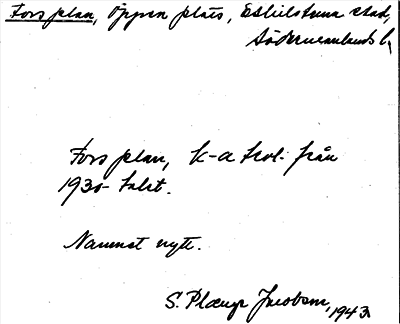 Fors plan, öppen plats, Eskilstuna stad,
Södermanlands l.
Fors plan, k-a trol. från
1930-talet.
Namnet nytt.
S. Plænge Jacobson, 1943